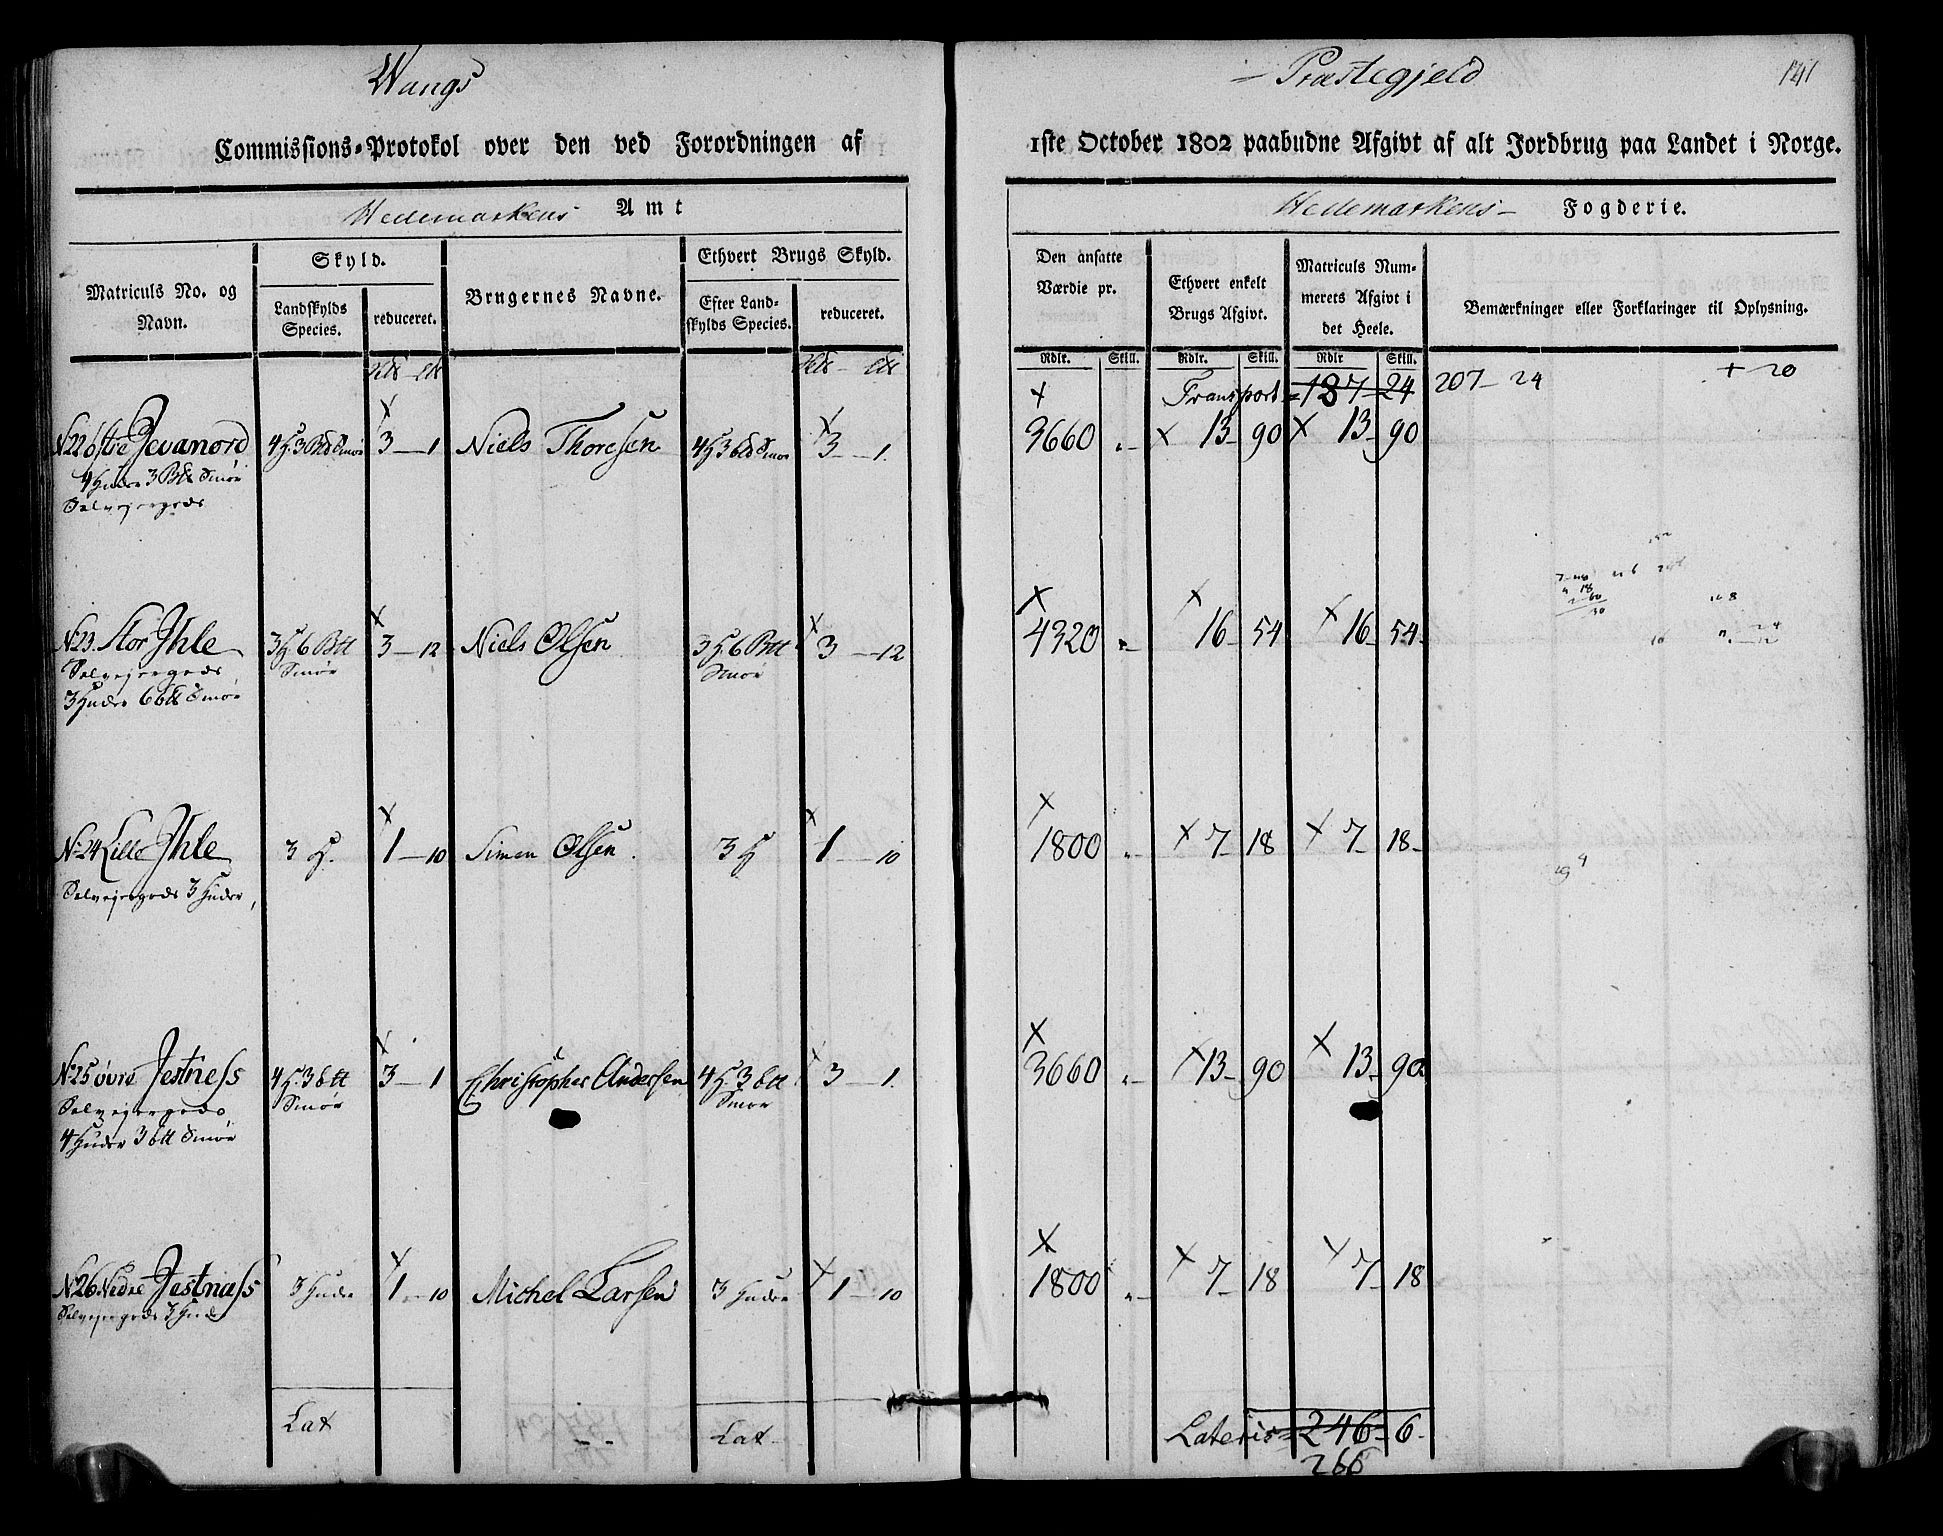 Wangs – Præstegjeld 141
Commissions-Protokol over den ved Forordningen af 1ste October 1802 paabudne Afgivt af alt Jordbrug paa Landet i Norge.
Hedemarkens Amt Hedemarkens – Fogderie.
Matriculs No. og Navn.
Skyld.
Landskylds Species.
reduceret.
Brugernes Navne.
Ethvert Brugs Skyld.
Efter Landskylds Species.
reduceret.
Den ansatte Værdie pr.
Ethvert enkelt Brugs Afgivt.
Matriculs Nummerets Afgivt i det Heele.
Bemærkninger eller Forklaringer til Oplysning.
Rdlr. Skill. Rdlr. Skill. Rdlr Skill.
Transport = 187 – 24 207 – 24 + 20
N22 østre Jevanord 4 H. 3 Btt Smør 3 – 1 Niels Thoresen 4 H 3 btt Smør 3 – 1. 3660 „– 13 – 90 13 – 90
4 Huder 3 Btt Smør
Selvejergods
N23. Stor Ihle 3 H 6 Btt Smør 3 – 12 Niels Olsen 3 H 6 Btt Smør 3 – 12 4320 „– 16 – 54 16 – 54 –
Selvejergods
3 Huder 6 btt Smør
N24 Lille Ihle 3 H. 1 – 10 Simen Olsen. 3 H 1 – 10 1800 „– 7 – 18 7 – 18 –
Selvejergods 3 Huder,
N25 øvre Jestness 4 H. 3 btt Smør 3 – 1 Christopher Andersen 4 H 3 btt Smør 3 – 1. 3660 „– 13 – 90 13 – 90
Selvejergods
4 Huder 3 btt Smør
N26. Nedre Jestness 3 Huder 1 – 10 Michel Larsen 3 Huder 1 – 10 1800 „– 7 – 18 7 – 18
Selvejergods 3 Hud
Lat – – Lat – Lateris = 246 – 6 –
266